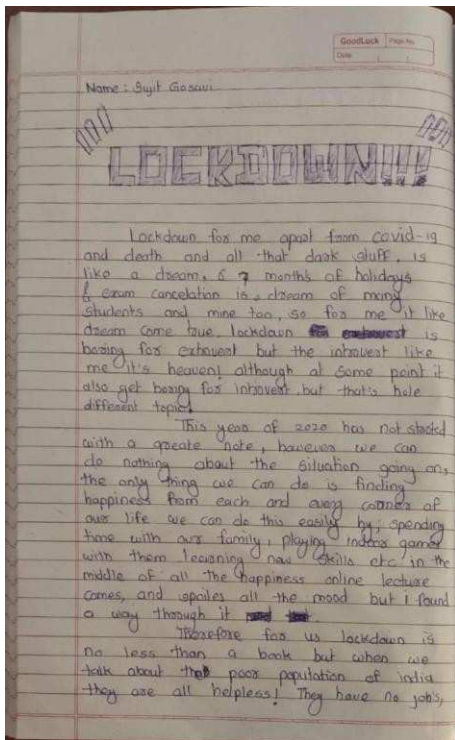 GoodLuck Page No.
Date
Name : Sujit Gosavi
LOCKDOWN!!!
Lockdown for me apart from covid-19
and death and all that dark stuff, is
like a dream, 6 7 months of holidays
& exam cancelation is, dream of many
students and mine too, so for me it like
dream come true, lockdown is
boring for extrovert but the introvert like
me it's heaven! although at some point it
also get boring for introvert but that's hole
different topic!
This year of 2020 has not started
with a greate note, however we can
do nothing about the situation going on,
the only thing we can do is finding
happiness from each and every corner of
our life we can do this easily by, spending
time with our family, playing indoor games
with them learning new skills etc in the
middle of all the happiness online lecture
comes, and spoiles all the mood but I found
a way through it
Therefore for us lockdown is
no less than a book but when we
talk about the poor population of india
they are all helpless! They have no job's,